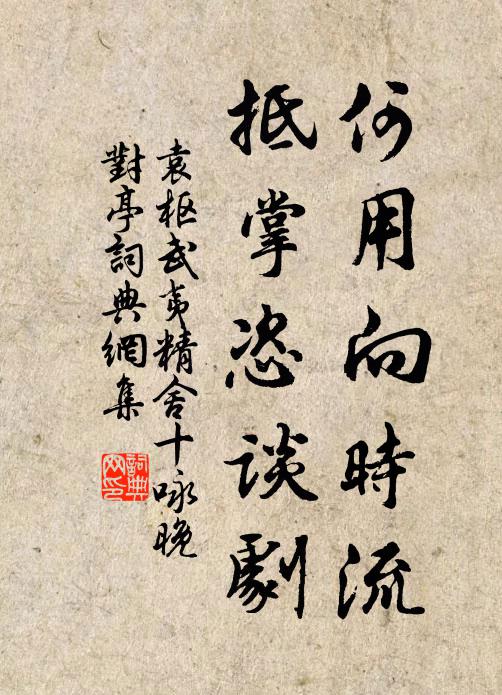 何用向時流
抵掌恣談劇
袁枢武夷精舍十咏晚
對亭詞典網集
詞典
网印